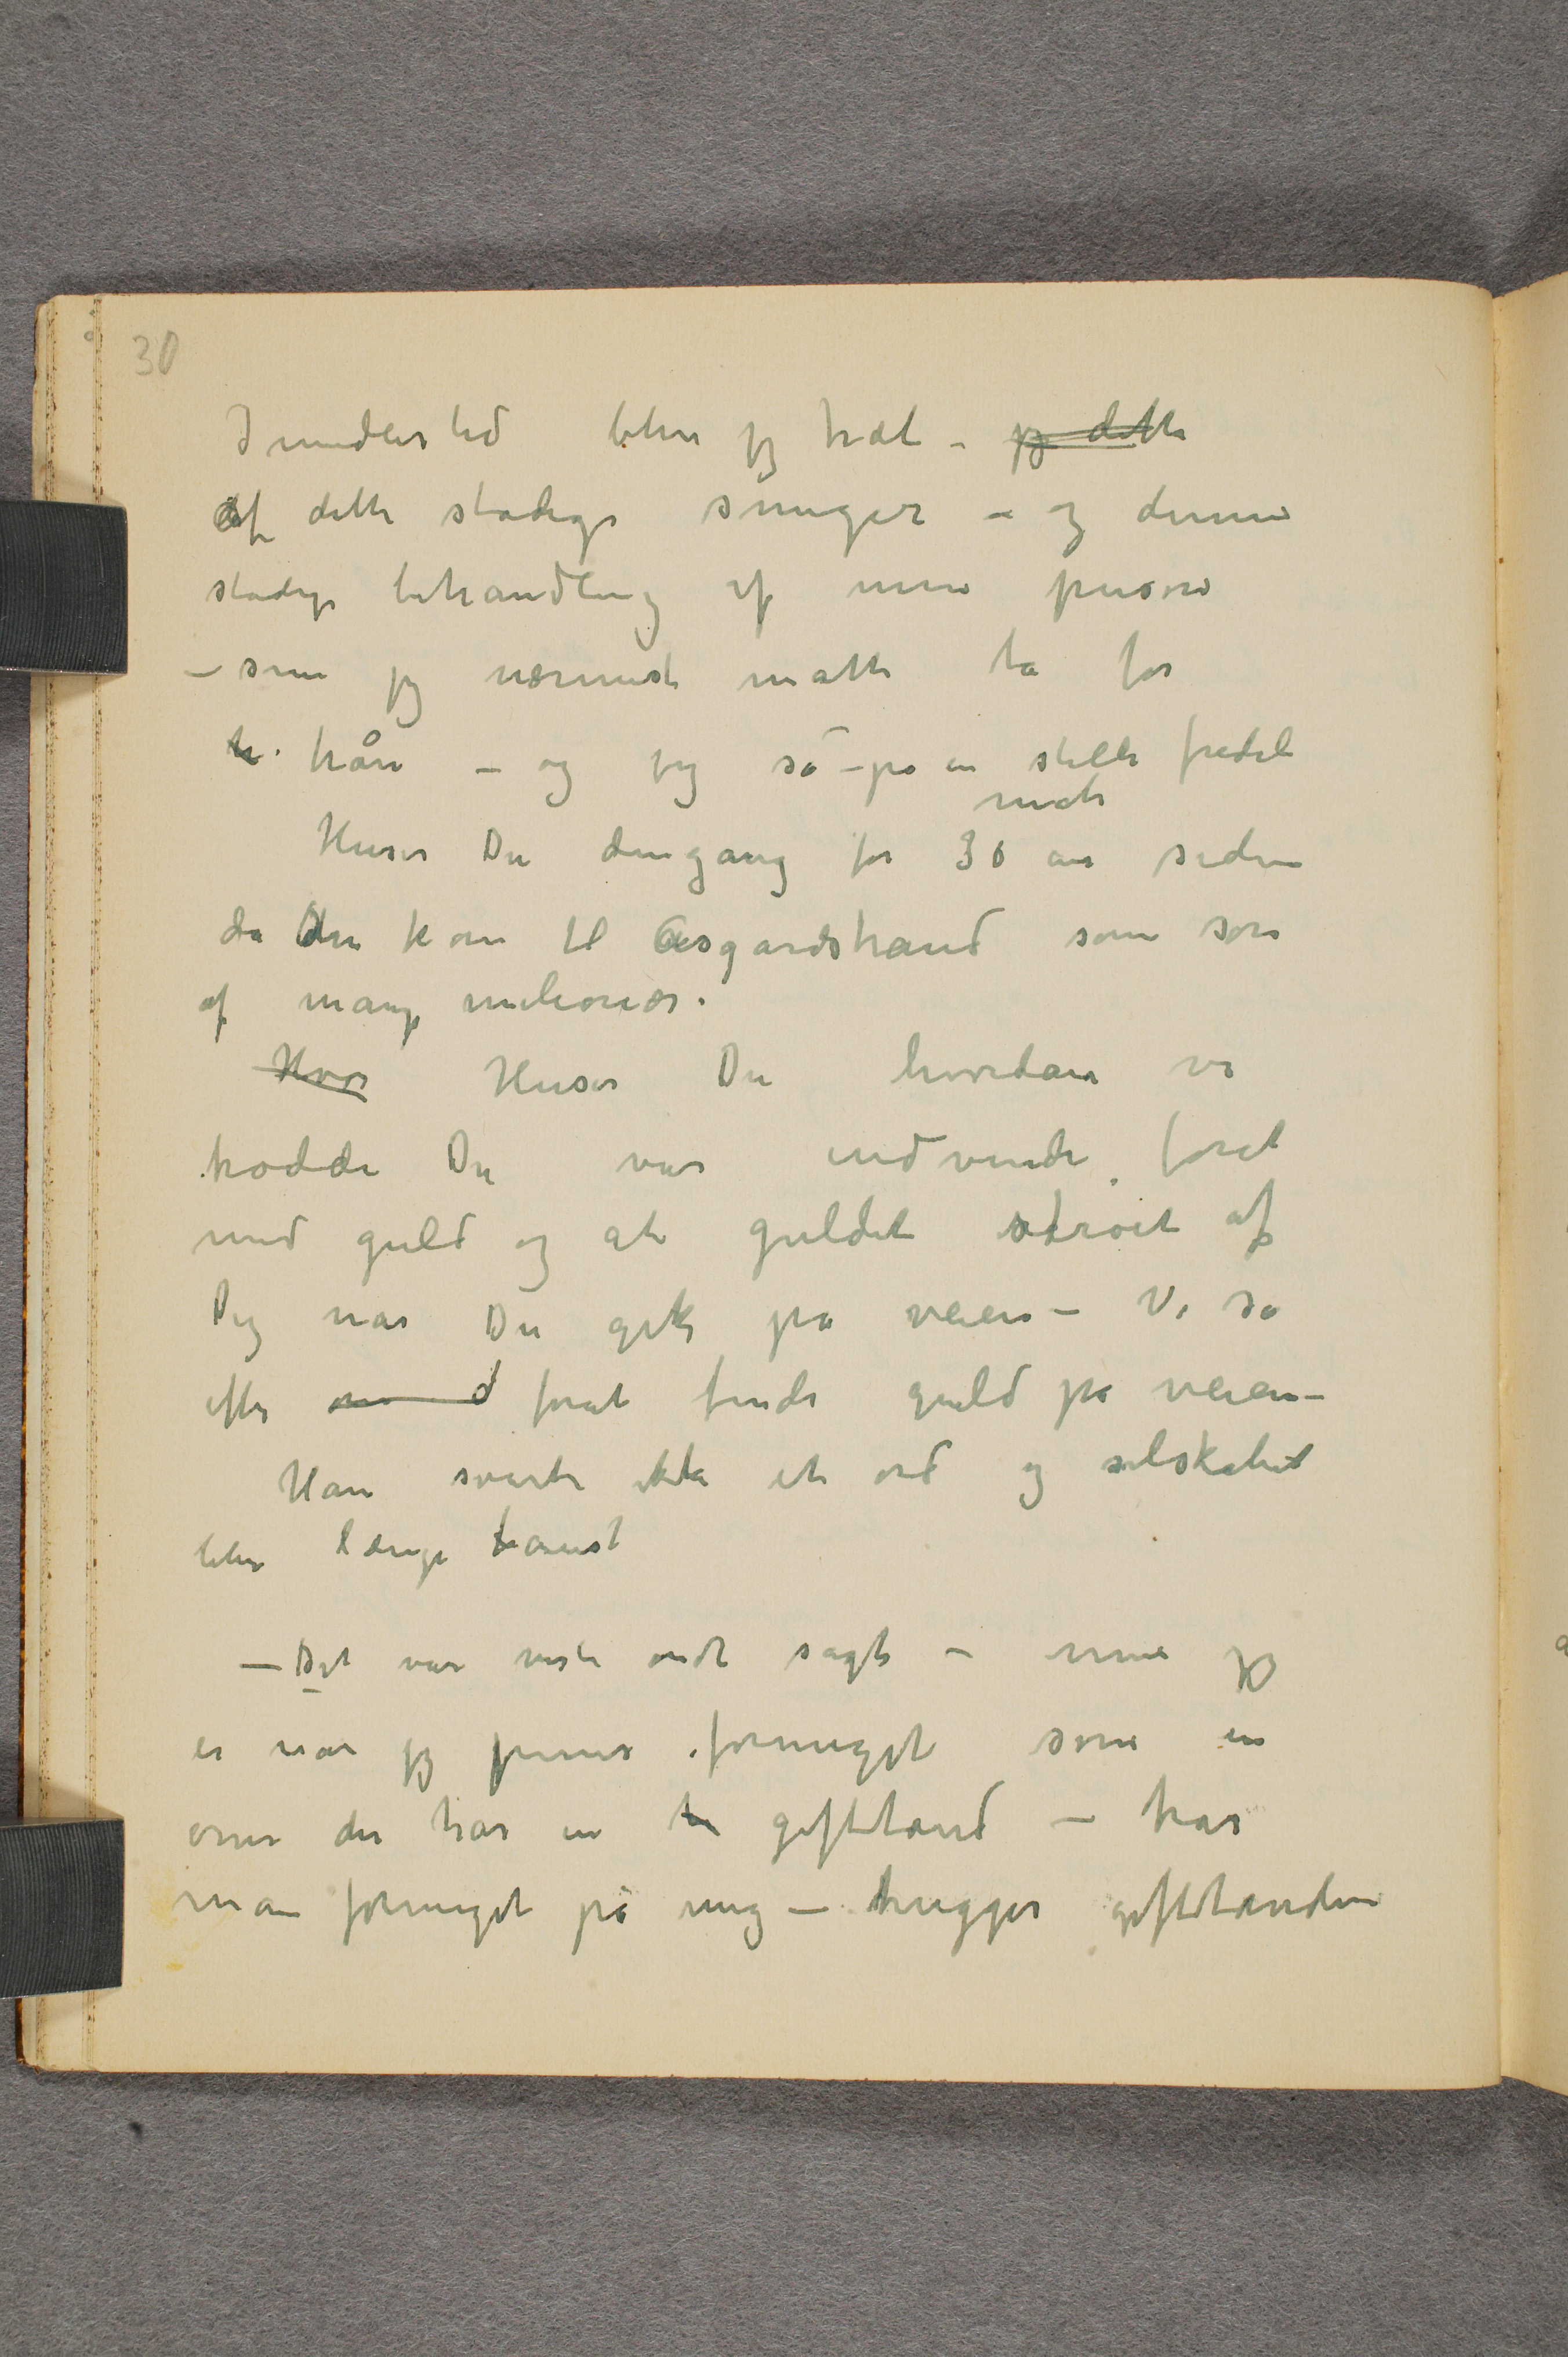 30
Imidlertid blev jeg træt – jeg dette
af dette stadige smiger – og denne
stadige behandling af min person
– som jeg nærmest måtte ta for
hån – og jeg sa – på en stille fredel
måte
Husker Du dengang for 30 år siden
da Du kom til Åsgårdstrand som søn
af mange milionær.
Hvor Husker Du hvordan vi
trodde Du var indvendi foret
med guld og at guldet drøit af
Dig når Du gik på veien – Vi så
efter om d forat finde guld på veien –
Han svarte ikke et ord og selskabet
blev længe taust
– Det var vist ondt sagt – men jeg
er når jeg pines formeget som en
orm der har en gifttand – trår
man formeget på mig – hugger gifttanden